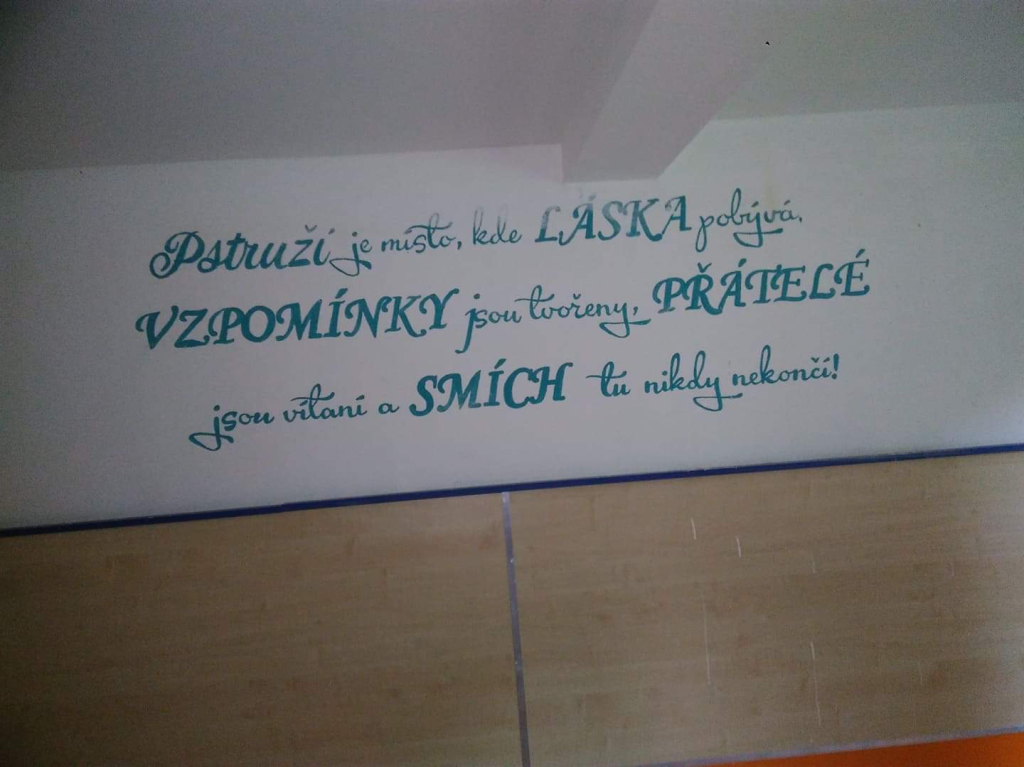 Pstruží je místo, kde LÁSKA pobývá,
VZPOMÍNKY jsou tvořeny, PŘÁTELÉ
jsou vítaní a SMÍCH tu nikdy nekončí!